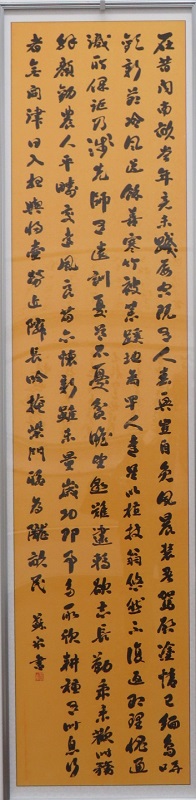 在昔聞南畝當年竟未踐屢空既有人春興豈自免夙晨裝吾駕啟塗情已緬鳥哢
歡新節冷風送餘善寒竹被荒蹊地為罕人遠是以植杖翁悠然不復返即理愧通
識所保詎乃淺先師有遺訓憂道不憂貧瞻望邈難逮轉欲志長勤秉耒歡時務
解顏勸農人平疇交遠風良苗亦懷新雖未量歲功即事多所欣耕種有時息行
者無問津日入相與歸壺漿勞近鄰長吟掩柴門聊為隴畝民
蘇書